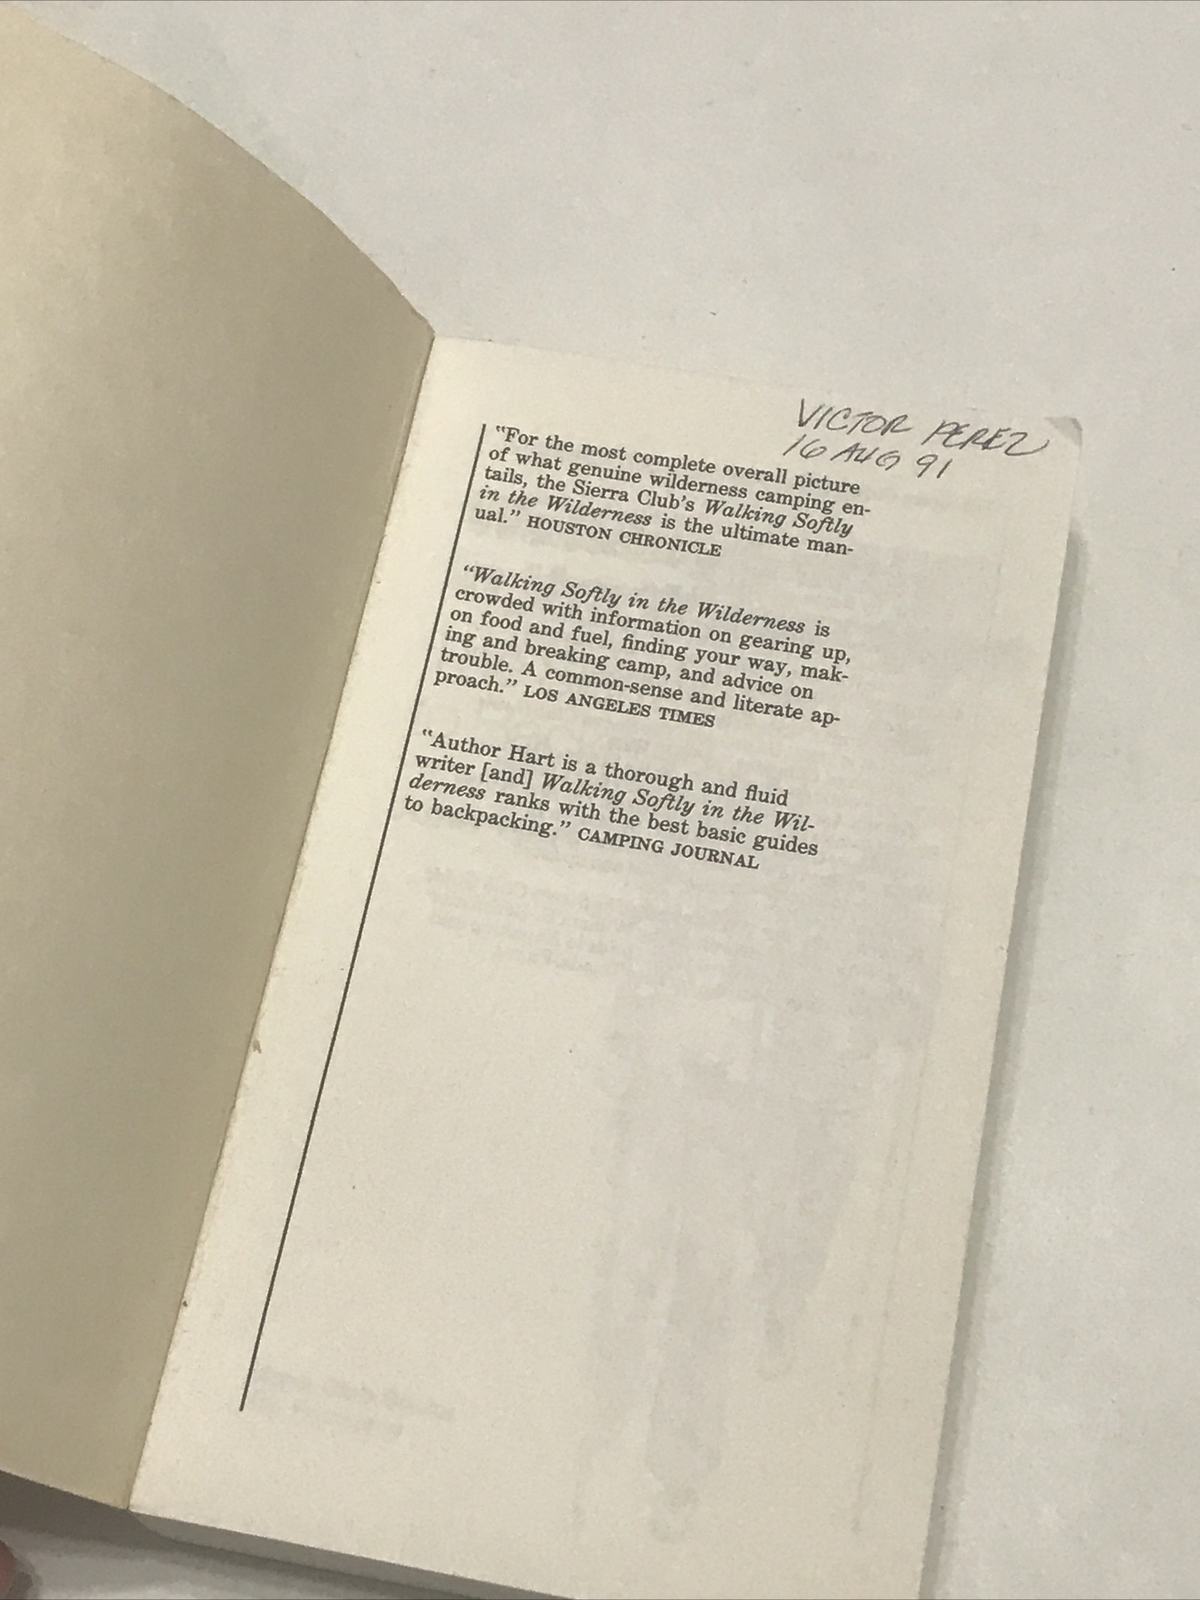 VICTOR PEREZ
16 AUG 91
"For the most complete overall picture
of what genuine wilderness camping en-
tails, the Sierra Club's Walking Softly
in the Wilderness is the ultimate man-
ual." HOUSTON CHRONICLE
"Walking Softly in the Wilderness is
crowded with information on gearing up,
on food and fuel, finding your way, mak-
ing and breaking camp, and advice on
trouble. A common-sense and literate ap-
proach." LOS ANGELES TIMES
"Author Hart is a thorough and fluid
writer [and] Walking Softly in the Wil-
derness ranks with the best basic guides
to backpacking." CAMPING JOURNAL